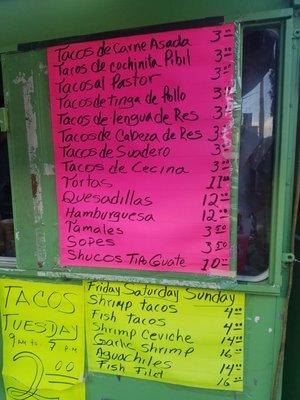 Tacos de Carne Asada 3.00
Tacos de cochinita Pibil 3.00
Tacos al Pastor 3.00
Tacos de tinga de Pollo 3.00
Tacos de lengua de Res 3.00
Tacos de Cabeza de Res 3.00
Tacos de Suadero 3.00
Tacos de Cecina 3.00
Tortas 11.00
Quesadillas 12.00
Hamburguesa 12.00
Tamales 3.50
Sopes 3.50
Shucos Tipo Guate 10.00
TACOS
TUESDAY
9 AM to 7 P.M
2.00
Friday Saturday Sunday
Shrimp tacos 4.00
Fish tacos 4.00
Shrimp Ceviche 14.00
Garlic Shrimp 16.00
Aguachiles 14.00
Fish Filet 16.00